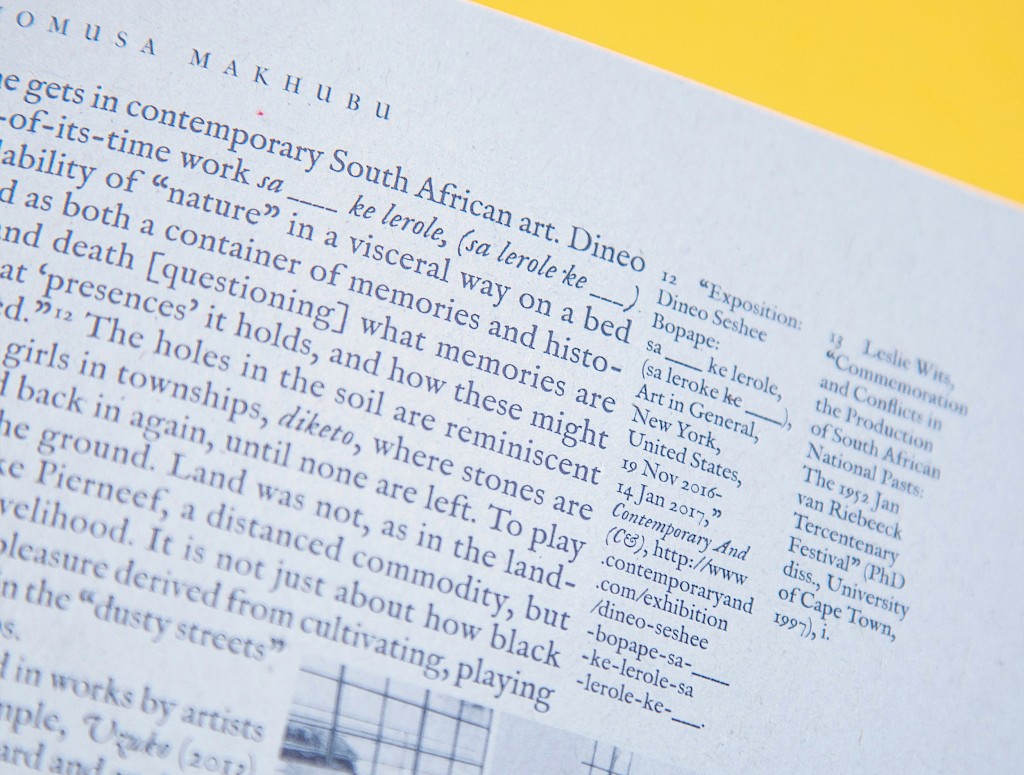 OMUSA MAKHUBU
ne gets in contemporary South African art. Dineo
-of-its-time work sa ____ ke lerole, (sa lerole ke ___)
lability of “nature” in a visceral way on a bed
d as both a container of memories and histo-
nd death [questioning] what memories are
at ‘presences’ it holds, and how these might
ed.”12 The holes in the soil are reminiscent
girls in townships, diketo, where stones are
d back in again, until none are left. To play
he ground. Land was not, as in the land-
ke Pierneef, a distanced commodity, but
velihood. It is not just about how black
pleasure derived from cultivating, playing
in the “dusty streets”
s.
d in works by artists
mple, Uzuko (2012)
ard and
12 “Exposition:
Dineo Seshee
Bopape:
sa ____ ke lerole,
(sa leroke ke ____),
Art in General,
New York,
United States,
19 Nov 2016-
14 Jan 2017,”
Contemporary And
(C&), http://www
.contemporaryand
.com/exhibition
/dineo-seshee
-bopape-sa-____
-ke-lerole-sa
-lerole-ke-___.
13 Leslie Wits,
“Commemoration
and Conflicts in
the Production
of South African
National Pasts:
The 1952 Jan
van Riebeeck
Tercentenary
Festival” (PhD
diss., University
of Cape Town,
1997), i.